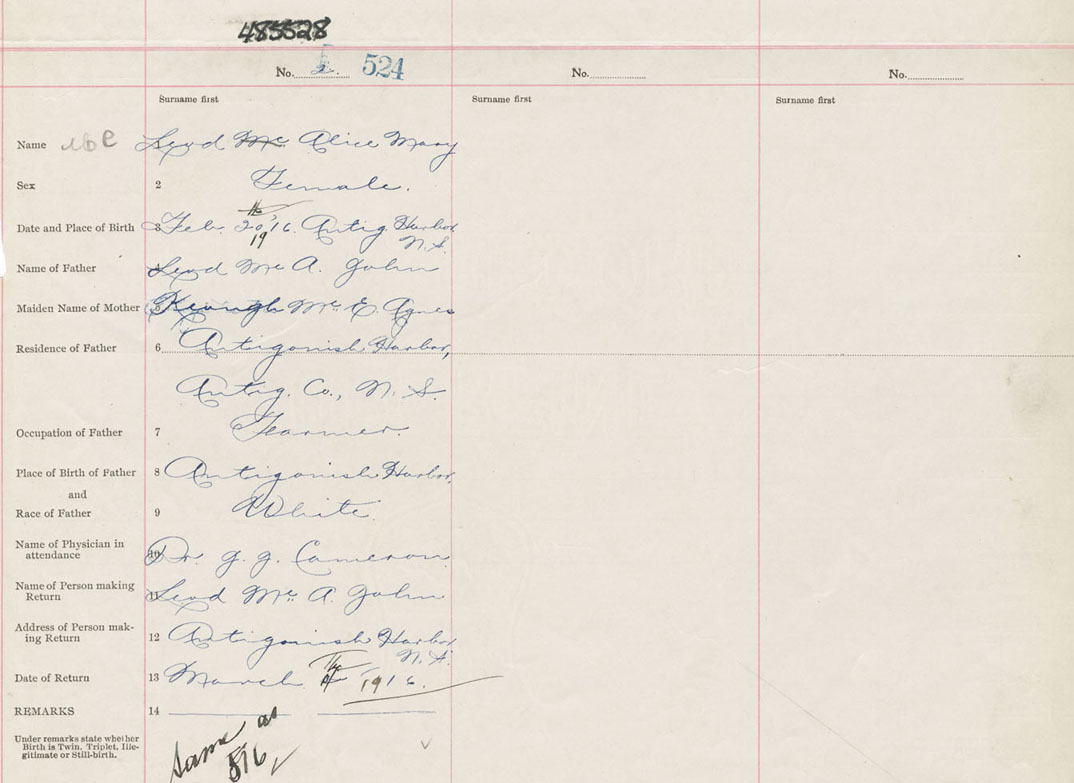 485528
No. 2. 524 No. No.
Surname first Surname first Surname first
Name Alice Mary
Sex 2 Female.
th
Date and Place of Birth 3 Feb. 20, '16. Antig. Harbor
19 N. S.
Name of Father Mc A. John
Maiden Name of Mother 5 Keough Mrs. E. Agnes
Residence of Father 6 Antigonish Harbor,
Antig. Co., N. S.
Occupation of Father 7 Farmer.
Place of Birth of Father 8 Antigonish Harbor,
and
Race of Father 9 White.
Name of Physician in
attendance 10 Dr. J. J. Cameron.
Name of Person making
Return 11 Mr. A. John
Address of Person mak-
ing Return 12 Antigonish Harbor
N. S.
Date of Return 13 March 1916.
REMARKS 14
Under remarks state whether
Birth is Twin, Triplet, Ille-
gitimate or Still-birth.
Same as
576